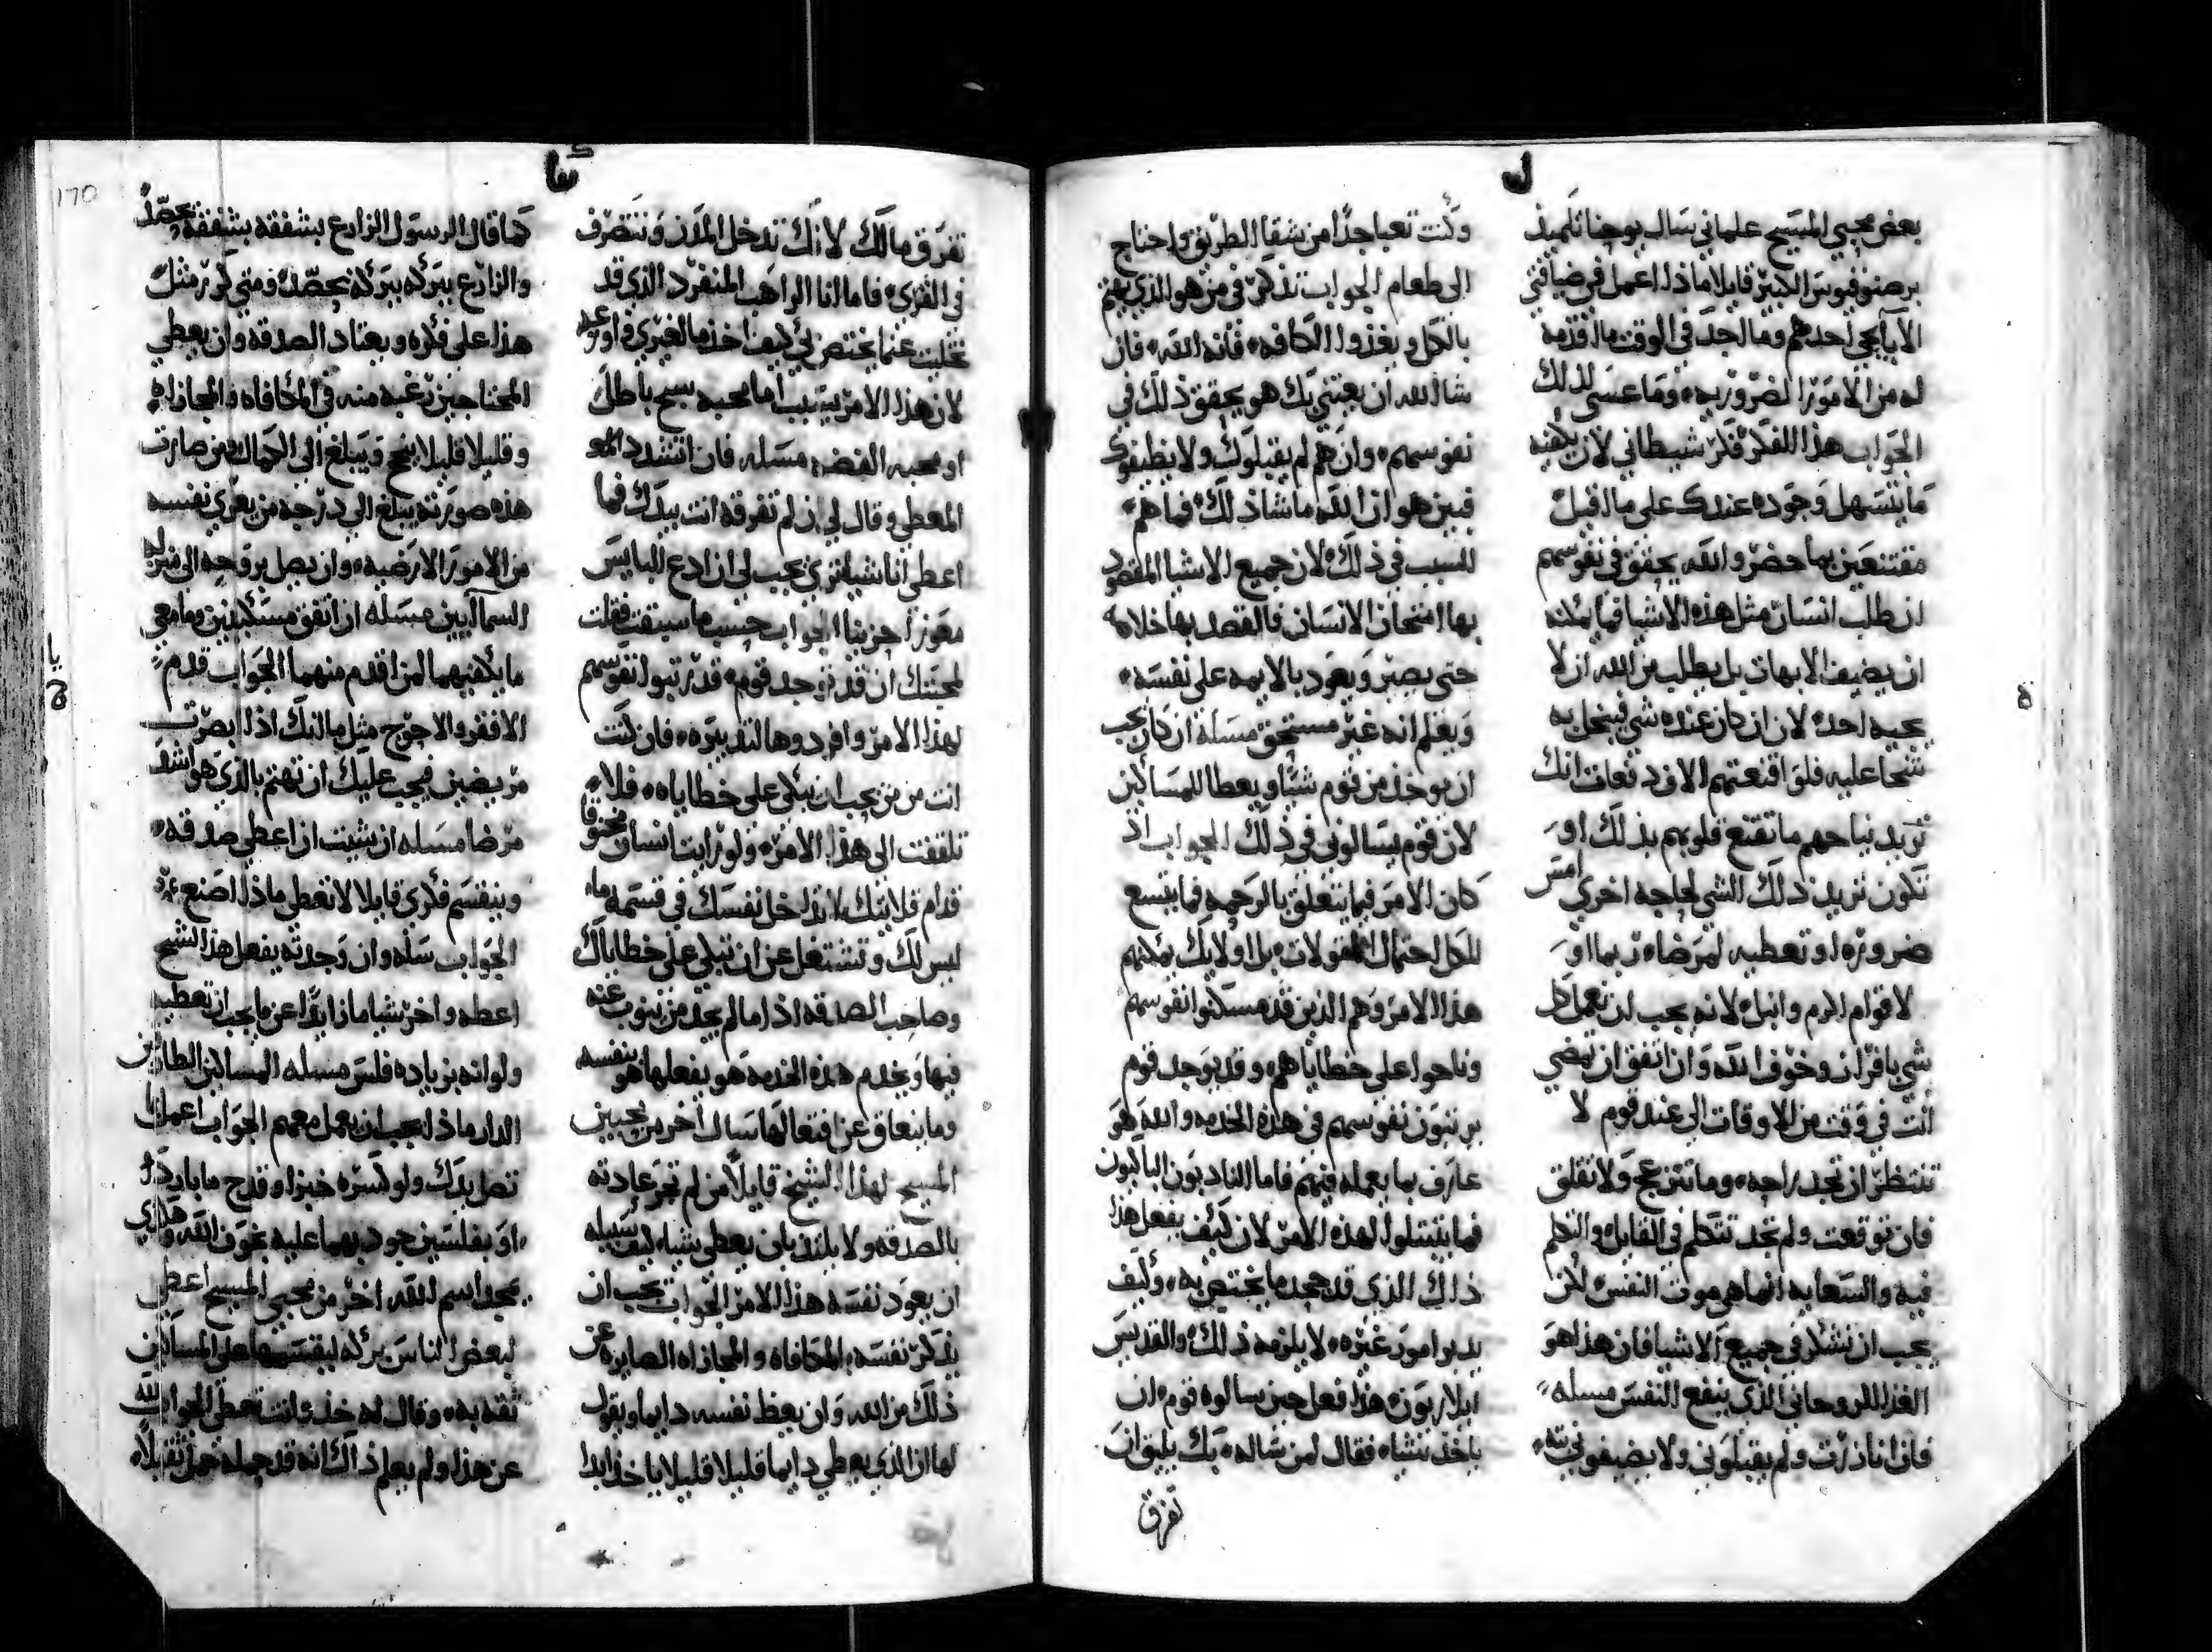 بعض محبي المسيح علماني سال يوحنا تلميذ
برصنوفيوس الكبير قايلا ماذا اعمل في ضيافتي
الآبا يجي احدهم وما اجد في الوقت ما اقدمه
له من الامور الضروريه وما عسى لذلك
الجواب هذا الفكر فكر شيطاني لان يكفيه
ما يتسهل وجوده عندك على ما اقبل
مقتنعين بما حضر والله يحقق في نفوسهم
ان طلب انسان مثل هذه الاشيا فما يمكنه
ان يضيف الابهات بل يطلب من الله ان لا
يجيه احد لان ان كان عنده شي فيبخل به
شحا عليه فلو اقنعتهم الاف دفعات انك
تريد نياحهم ما تقنع قلوبهم بذلك او
تكون تريد ذلك الشي لحاجه اخرى امس
ضروره او تعطيه لمرضا ربما او
لاقوام اكرم وانبل لانه يجب ان نعمل كل
شي بافراز وخوف الله وان اتفق ان تمضي
انت في وقت من الاوقات الى عند قوم لا
تنتظر ان تجد راحه وما تنزعج ولا تقلق
فان توقعت ولم تجد تتكلم في القابل والتكلم
فيه والسعايه انما هي موت النفس لكن
يجب ان نشكر في جميع الاشيا فان هذا هو
الغذا الروحاني الذي ينفع النفس مسله
فان انا زرت ولم يقبلوني ولا يضيفوني
وكنت تعبا جدا من شقا الطريق واحتاج
الى طعام الجواب تذكر في من هو الذي يهتم
بالكل ويغذوا الكافه فانه الله فان
شا الله ان يعتني بك هو يحقق ذلك في
نفوسهم وان هم لم يقبلوك ولا يضيفوك
فبين هو ان الله ما شا ذلك فما هم
السبب في ذلك لان جميع الاشيا المقصود
بها امتحان الانسان فالقصد بها خلاصه
حتى يصبر ويعود بالايمه على نفسه
ويعلم انه غير مستحق مسلة ان كان يجب
ان يوخذ من قوم شيا ويعطا للمساكين
لان قوم يسالوني في ذلك الجواب اذ
كان الامر فيما يتعلق بالرحمه فما يتسع
الكل لاحتمال المقولات بل اوليك يمكنهم
هذا الامر وهم الذين قد مسكنوا نفوسهم
وناحوا على خطاياهم وقد يوجد قوم
يرتبون نفوسهم في هذه الخدمه والله هو
عارف بما يعمله فيهم فاما النادبون الباكون
فما يتسلوا لهذه الامر لان كيف يفعل هذا
ذلك الذي قد جحد ما يختص به وكيف
يدبر امور غيره لا يلزمه ذلك والقديس
ايلاريون هذا فعل حين سالوه قوم ان
ياخذ شيا فقال لمن ساله بك يليق ان
تفرق
تفرق مالك لانك تدخل المدن وتتصرف
في القرى فاما انا الراهب المنفرد الذي قد
تخليت عما يختص بي كيف اخذ ما لغيري
لان هذا الامر يسبب اما محبه سبح باطل
او محبه الفضه مسله فان تشدد
المعطي وقال لي ان لم تفرقه انت بيدك فما
اعطي انا شيا ترى يجب لي ان ادع البايس
معوزا حزينا الجواب حسب ما سبقت فقلت
لمحبتك ان قد يوجد قوم قد رتبوا نفوسهم
لهذا الامر وافردوها لتدبيره فان كنت
انت من من يجب ان يبكي على خطاياه فلا
تلتفت الى هذا الامر ولو رايت انسان مخنوقا
قدام قلايتك لا تدخل نفسك في قسمه ما
ليس لك وتشتغل عن ان تبكي على خطاياك
وصاحب الصدقه اذا ما لم يجد من ينوب عنه
فيها ويخدم هذه الخدمه هو يفعلها هو بنفسه
وما يتعاق عن افتعالها سال اخر من محبين
المسيح لهذا الشيخ قايلا من لم تجر عادته
بالصدقه ولا يلتذ بان يعطي شيا كيف سبيله
ان يعود نفسه هذا الامر الجواب يجب ان
يذكر نفسه بالمكافاة والمجازاه الصايره عن
ذلك من الله وان يعظ نفسه دايما ويقول
لها ان الذي يعطي دايما قليلا قليلا ياخذ ابدا
كما قال الرسول الزارع بشفقه بشفقه يحصد
والزارع ببركه ببركه يحصد ومتى كرر مثل
هذا على فكره ويعتاد الصدقه وان يعطي
المحتاجين رغبه منه في المكافاه والمجازاه
وقليلا قليلا ينجح ويبلغ الى الكمال ومن صارت
هذه صورته يبلغ الى درجه من يعري نفسه
من الامور الارضيه وان يصل بروحه الى منزله
السماآيين مسله ان اتفق مسكينين وما معي
ما يكفيهما لمن اقدم منهما الجواب قدم
الافقر والاحوج مثل ما انك اذا ابصرت
مريضين فيجب عليك ان تهتم بالذي هو اشد
مرضا مسله ان شيت ان اعطي صدقه
وينقسم فكري قايلا لا تعطي ماذا اصنع
الجواب سله وان وجدته يفعل هذا الشح
اعطه واخر شيا ما زايدا عن ما يجب ان تعطيه
ولو انه بزياده فلس مسله المساكين الطايفين
الديار ماذا يجب ان يعمل معهم الجواب اعمل ما
تصل يدك ولو كسره خبز او قدح ما بارد
او بفلسين جود بهما عليه
مجد اسم الله اخر من محبي المسيح اعطى
لبعض الناس بركه ليقسمها على المساكين
ثقه به وقال له خذ وانت تعطي الجواب لله
عن هذا ولم يعلم ذاك انه قد حمله حمل ثقيلا